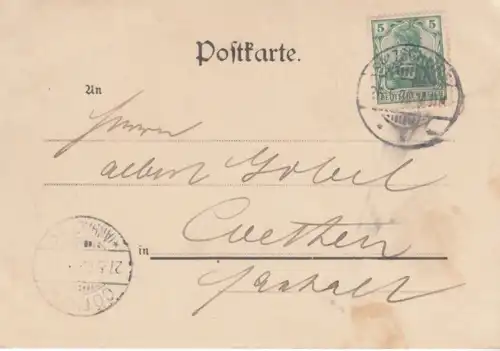 5
Postkarte.
An
Herrn
Albert Göbel
in Coethen
Anhalt